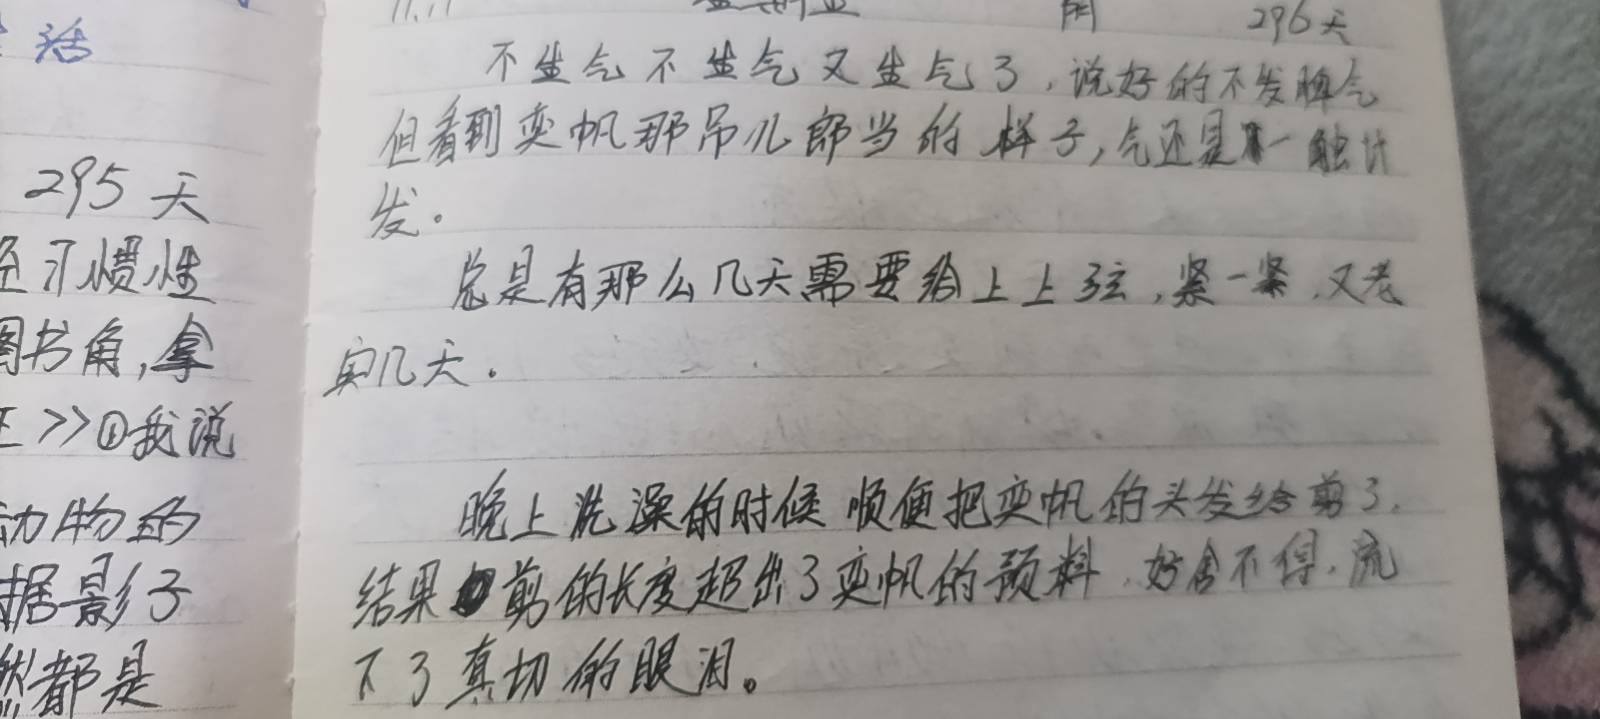 活
295天
习惯性
图书角，拿
>>①我说
动物的
据影子
然都是
11.11 星期五 阴 296天
不生气不生气又生气了，说好的不发脾气
但看到奕帆那吊儿郎当的样子，气还是一触计
发。
总是有那么几天需要给上上弦，紧一紧，又老
实几天。
晚上洗澡的时候顺便把奕帆的头发给剪了，
结果剪的长度超出了奕帆的预料，好舍不得，流
下了真切的眼泪。